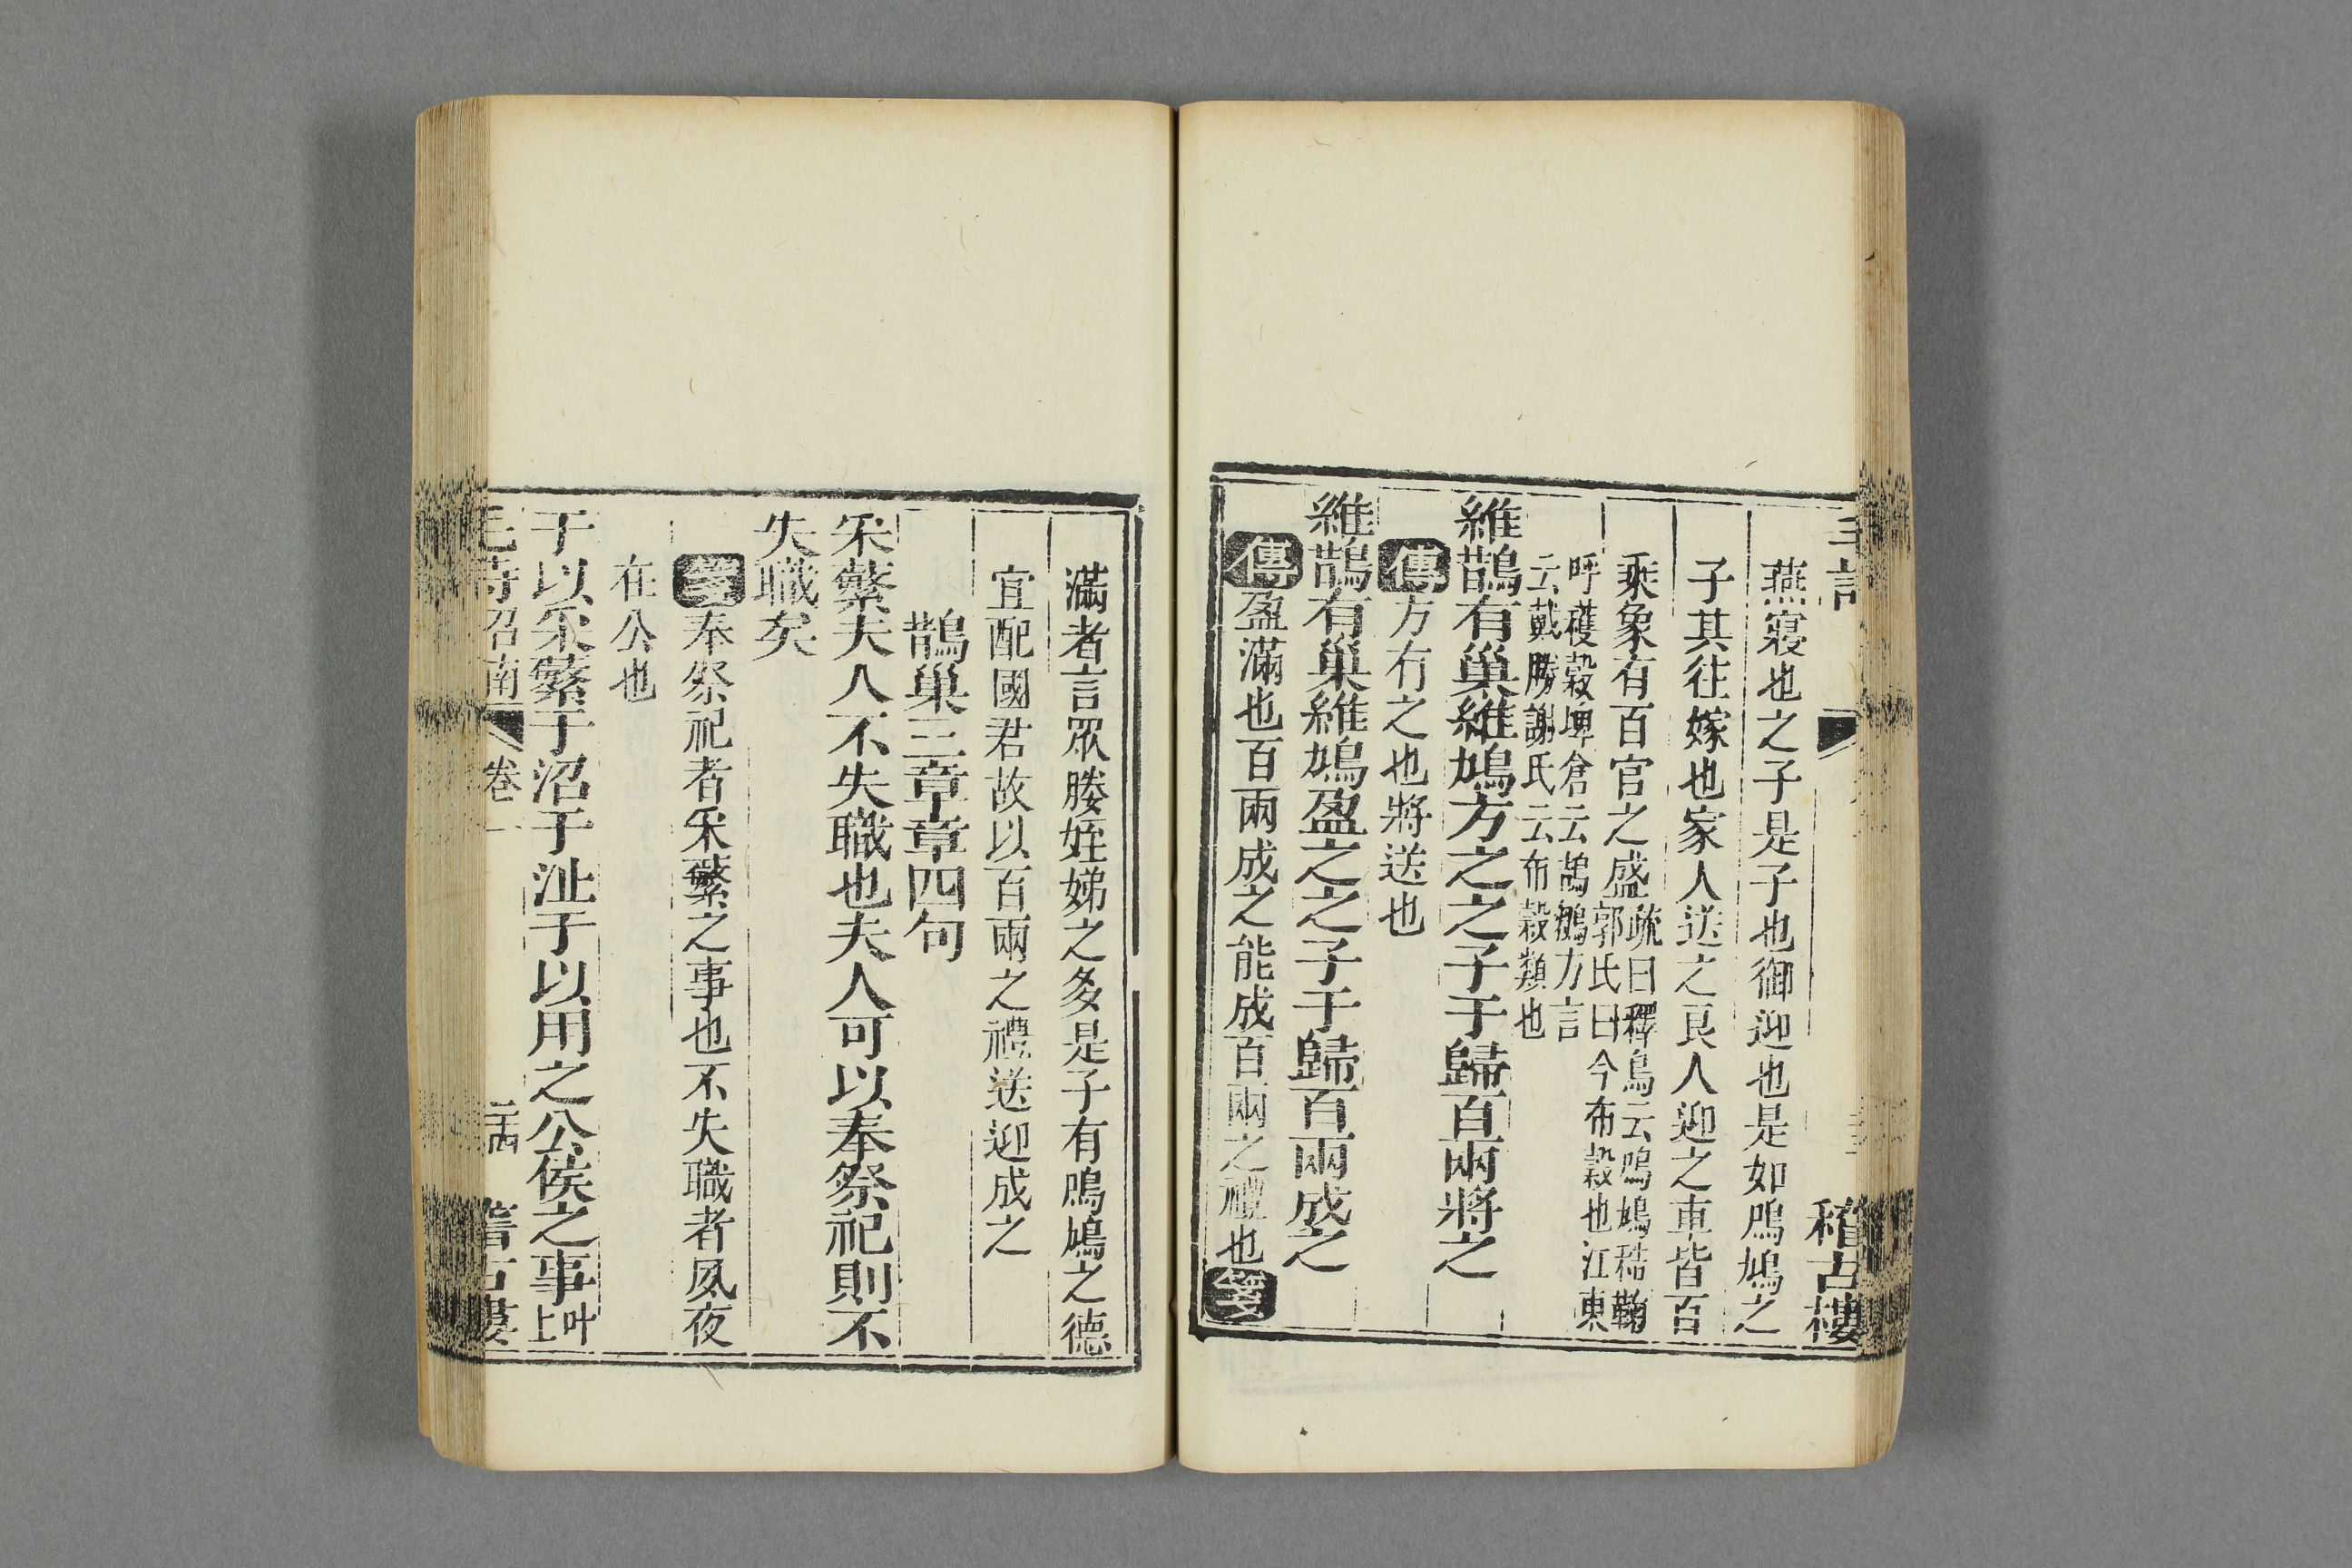 稽古樓
燕寢也之子是子也御迎也是如鳲鳩之
子其往嫁也家人送之良人迎之車皆百
乘象有百官之盛疏曰釋鳥云鳲鳩秸鞠
郭氏曰今布穀也江東
呼穫穀埤倉云鴶鵴方言
云戴勝謝氏云布穀類也
維鵲有巢維鳩方之之子于歸百兩將之
傳方有之也將送也
維鵲有巢維鳩盈之之子于歸百兩成之
傳盈滿也百兩成之能成百兩之禮也箋
滿者言眾媵姪娣之多是子有鳲鳩之德
宜配國君故以百兩之禮送迎成之
鵲巢三章章四句
采蘩夫人不失職也夫人可以奉祭祀則不
失職矣
箋奉祭祀者采蘩之事也不失職者夙夜
在公也
于以采蘩于沼于沚于以用之公侯之事叶
上
毛詩召南 卷一 二十四 稽古樓